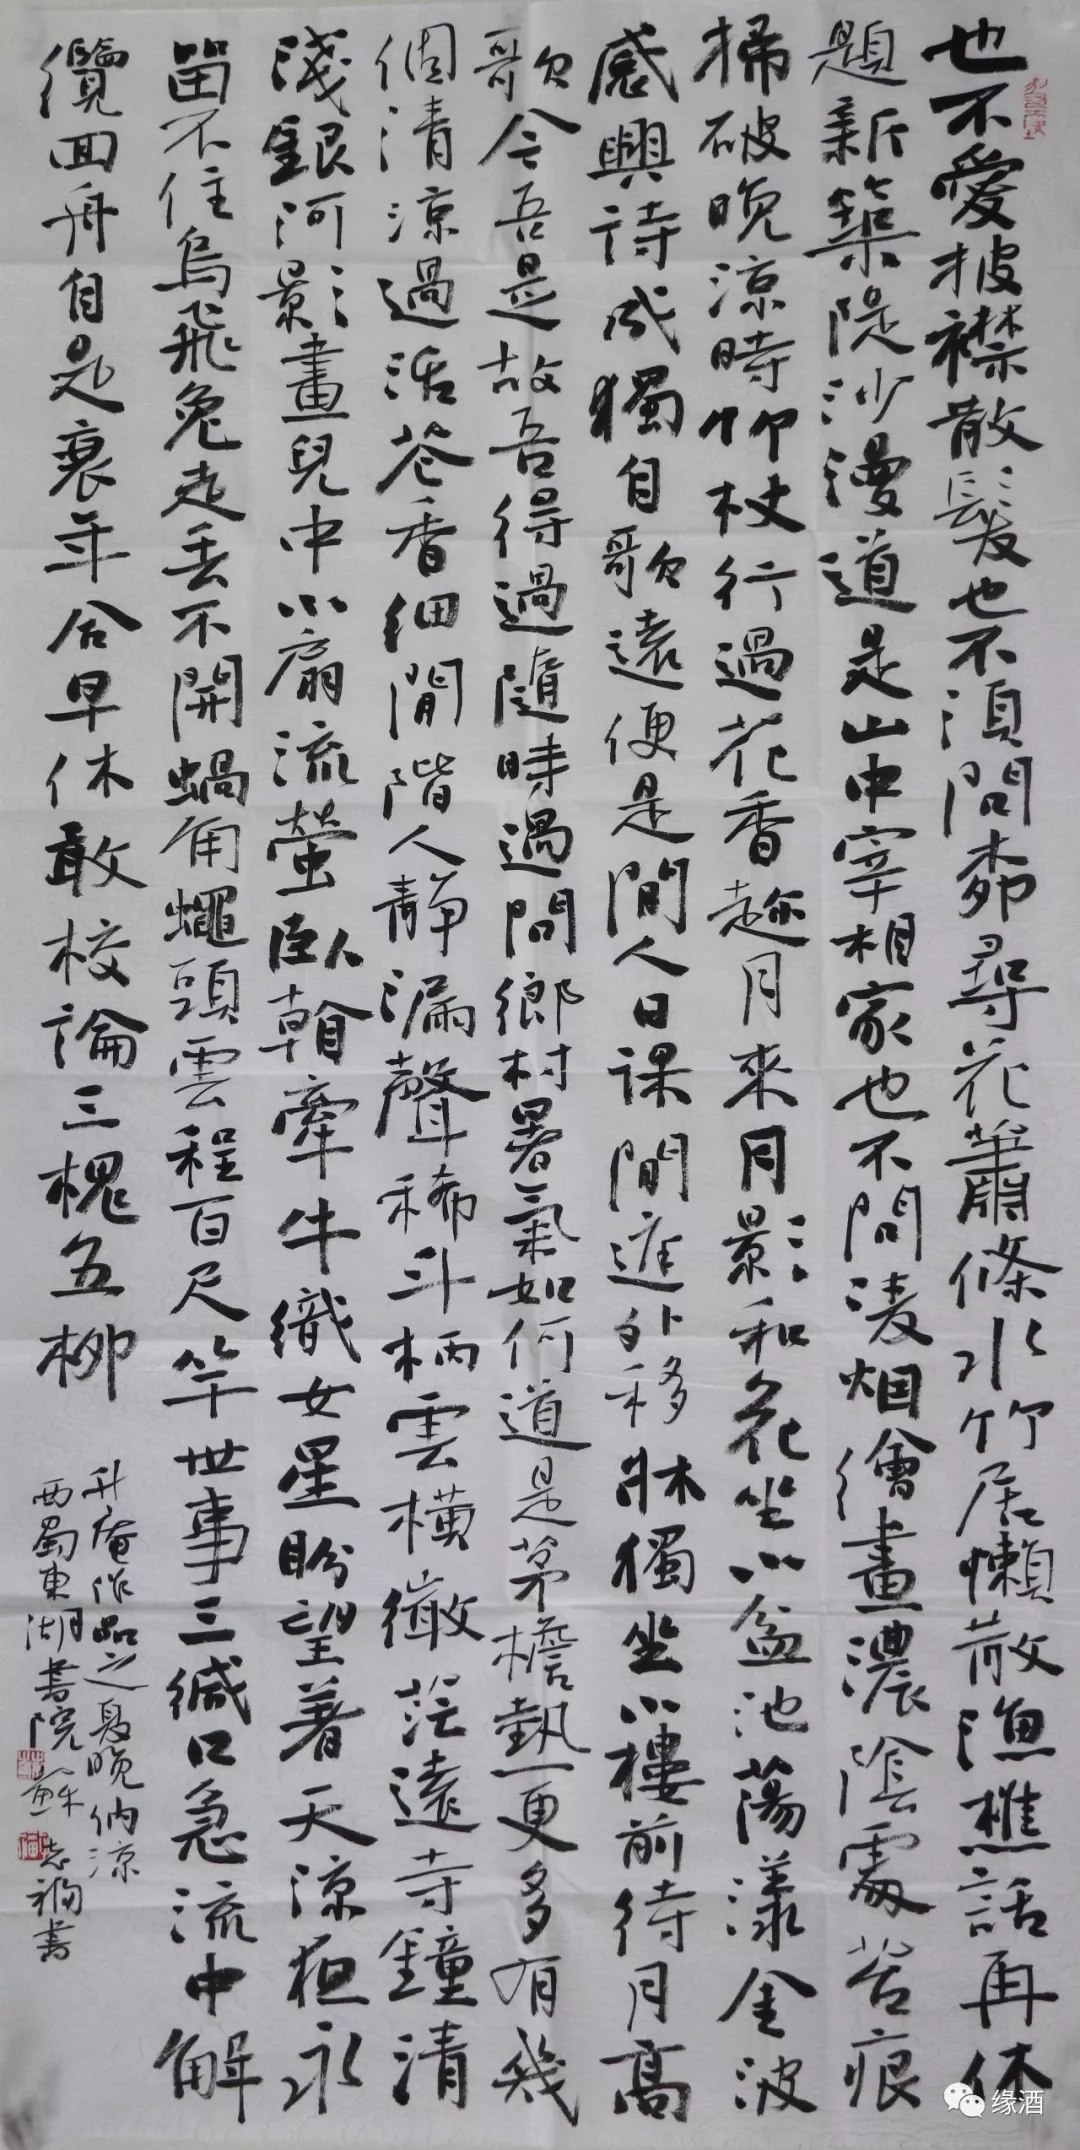 也不愛披襟散髮也不須問柳尋花蕭條水竹居懶散漁樵話再休
題新築隄沙漫道是山中宰相家也不問凌烟繪畫濃陰處苔痕
掃破晚涼時卭杖行過花香趂月來月影和花坐小盆池蕩漾金波
感興詩成獨自歌遠便是閒人日課閒庭外移牀獨坐小樓前待月高
歌今吾是故吾得過隨時過問鄉村暑氣如何道是茅檐熱更多有幾
個清涼過活荅香細閒階人靜漏聲稀斗柄雲橫徹茫遠寺鐘清
淺銀河影畫兒中小扇流螢臥翰牽牛織女星盼望着天涼夜永
留不住烏飛兔走丢不開蝸角蠅頭雲程百尺竿世事三緘口急流中解
纜回舟自是衰年合早休敢校論三槐五柳
升庵作品之夏晚納涼
西蜀東湖書院蘇志福書
缘酒